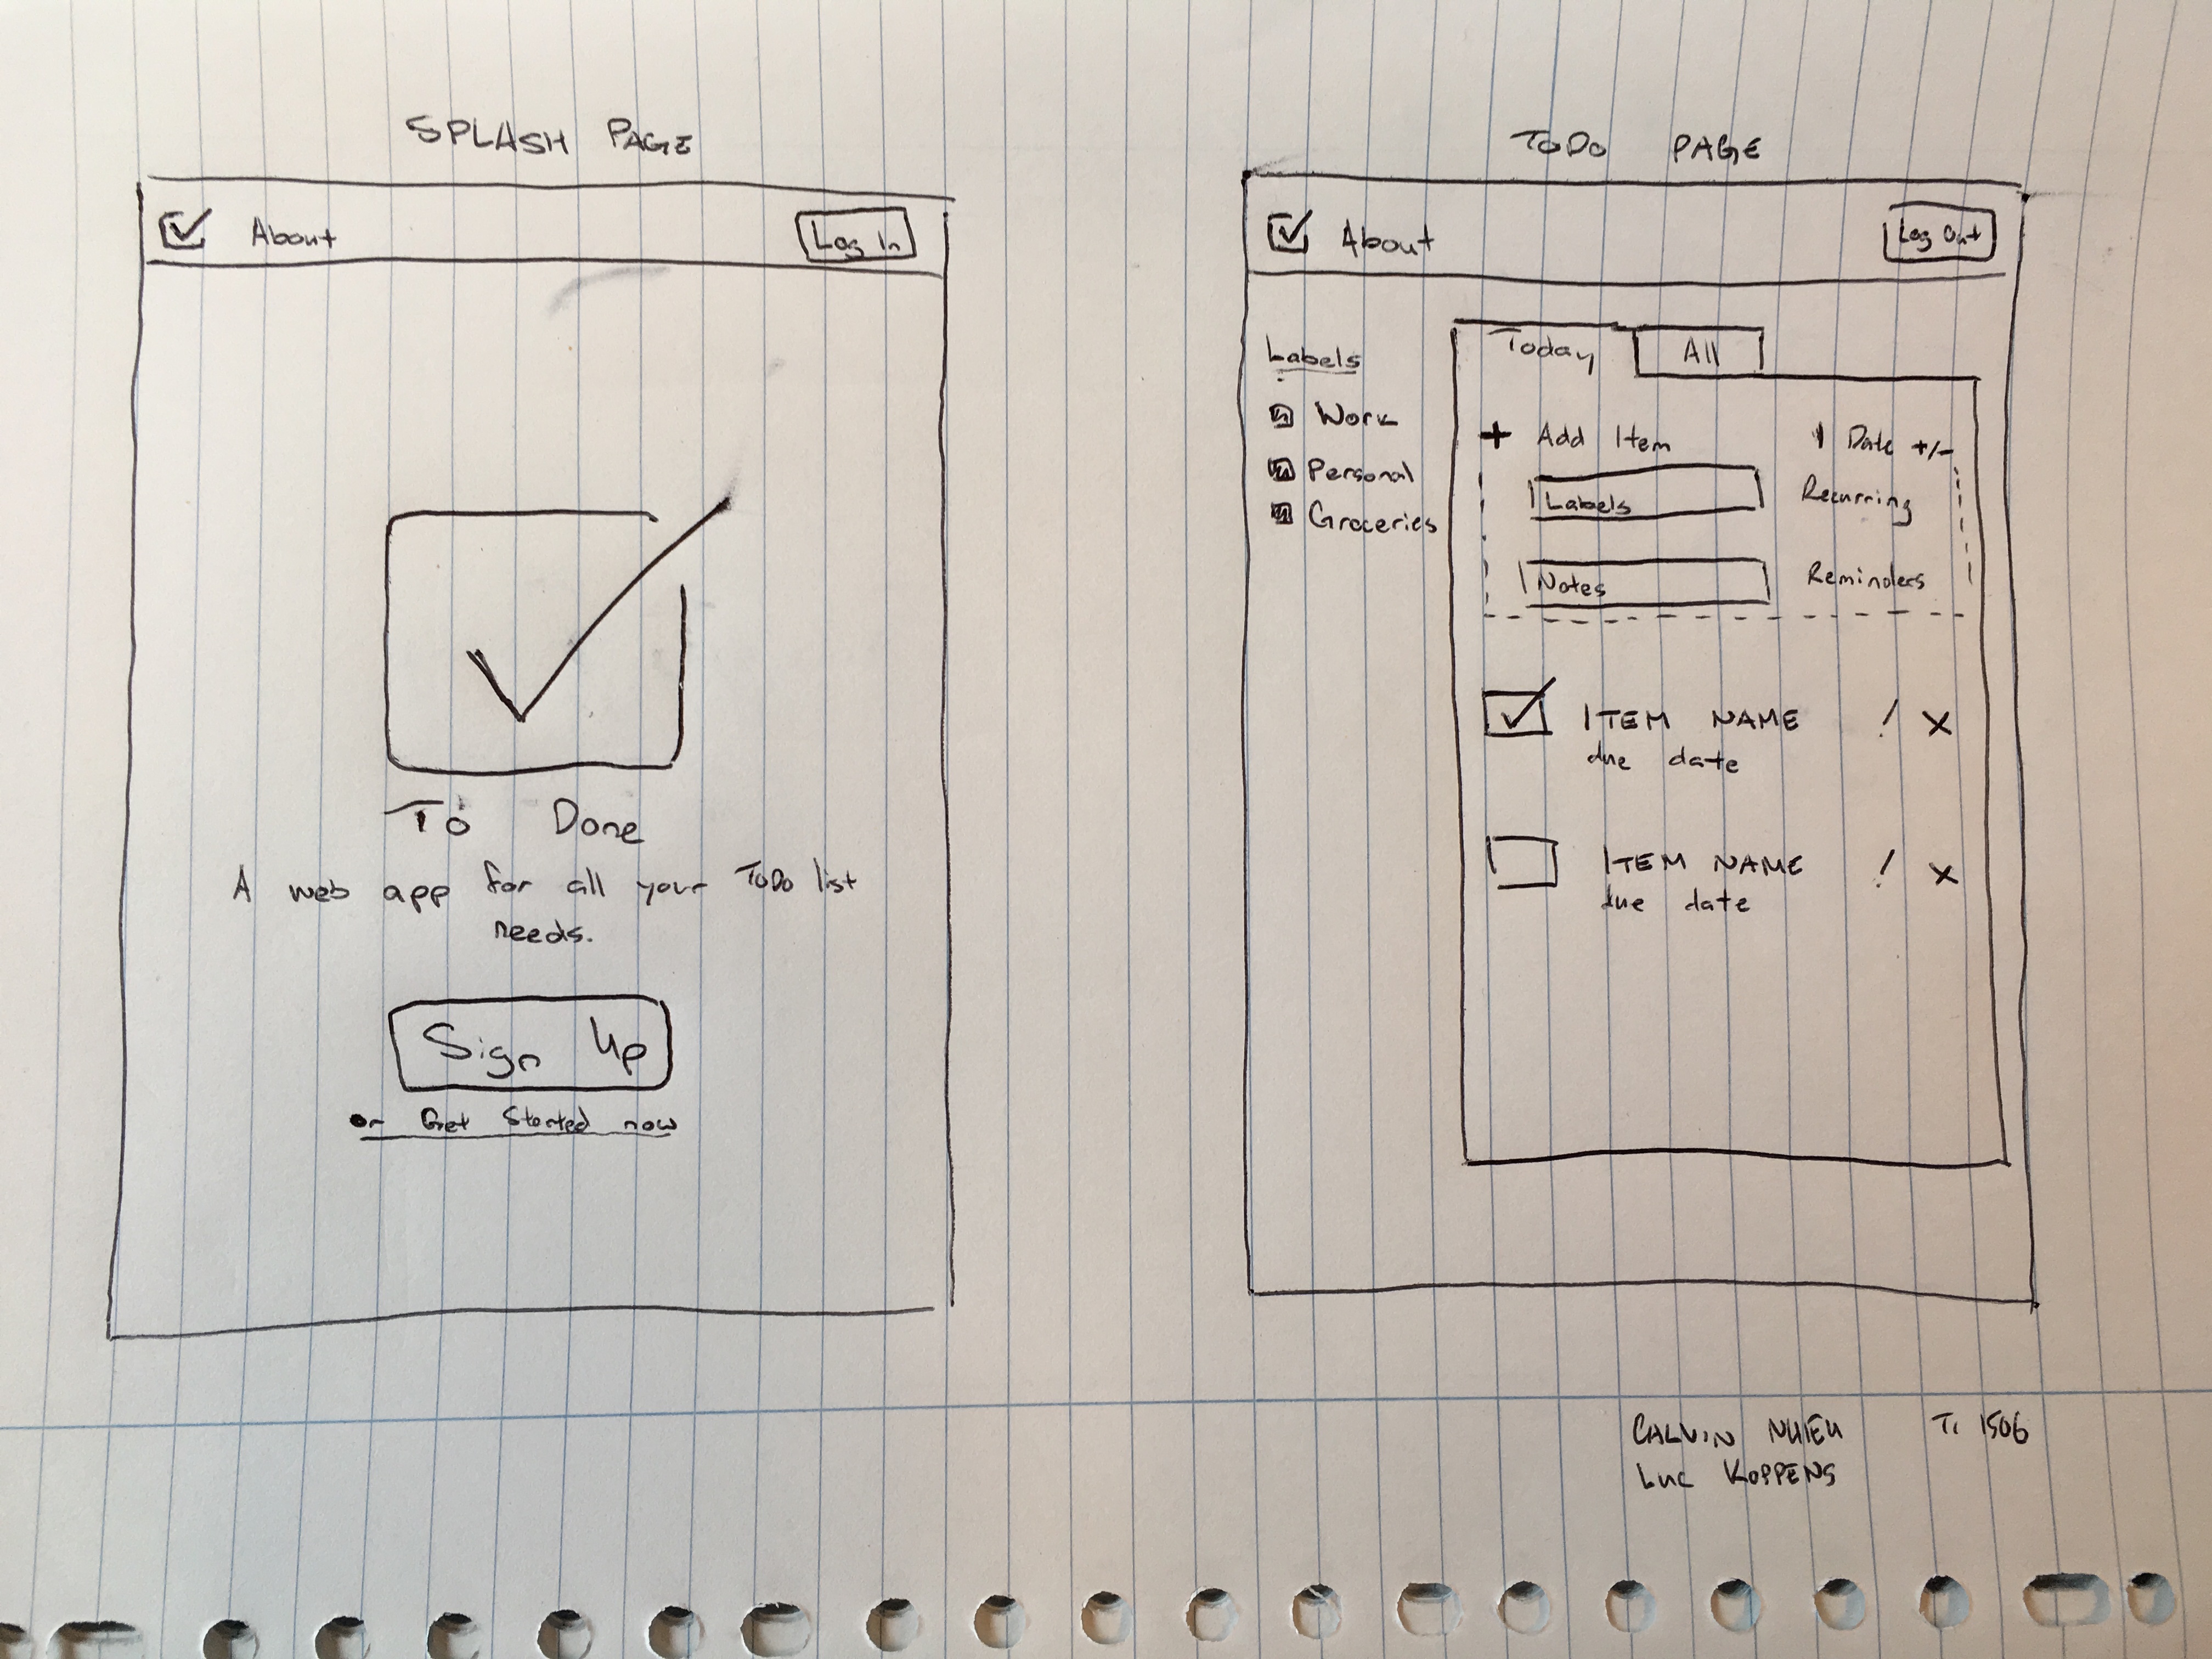 SPLASH PAGE
About
Log In
To Done
A web app for all your ToDo list
needs.
Sign Up
or Get Started now
ToDo PAGE
About
Log Out
Labels
Work
Personal
Groceries
Today
All
+ Add Item
Date +/-
Labels
Recurring
Notes
Reminders
ITEM NAME ! X
due date
ITEM NAME ! X
due date
CALVIN NHIEU T1 1506
Luc KOPPENS